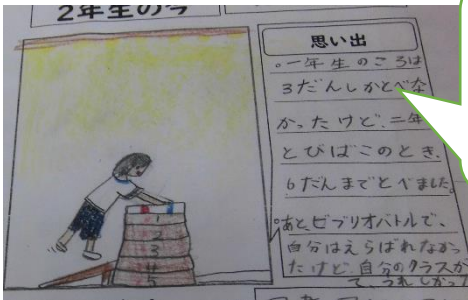 2年生の今
思い出
。一年生のころは
3だんしかとべな
かったけど、二年
とびばこのとき、
6だんまでとべました。
。あと、ビブリオバトルで、
自分はえらばれなかっ
たけど、自分のクラスが
て、うれしかっ
1
2
3
4
5